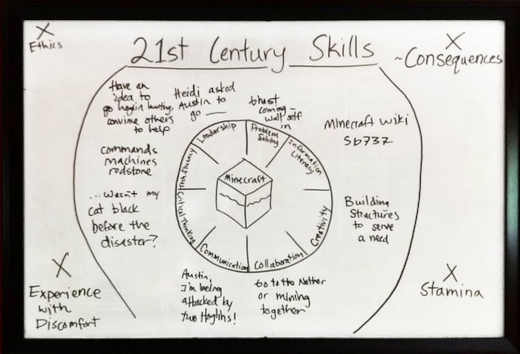 Ethics
21st Century Skills
~Consequences
Have an
idea to
go hoglin hunting
convince others
to help
Heidi asked
Austin to
go
Ghast
coming -
wall self
in
Minecraft Wiki
Sb737
commands
machines
redstone
...wasn't my
cat black
before the
disaster?
Leadership
Problem
Solving
Information
Literacy
Creativity
Collaboration
Communication
Critical Thinking
Minecraft
Building
Structures
to serve
a need
Austin,
I'm being
attacked by
two Hoglins!
Go to the Nether
or mining
together
Experience
with
Discomfort
Stamina